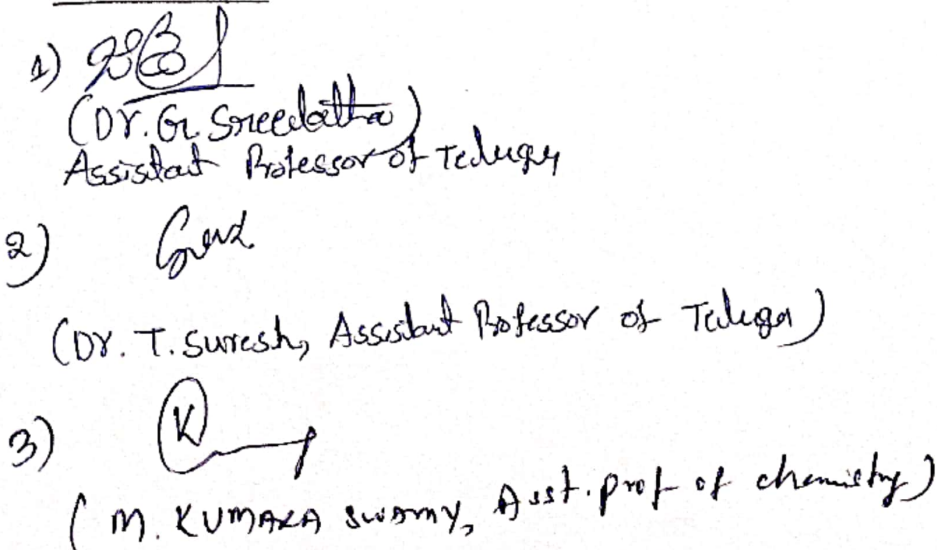 1)
(Dr. G. Sreelatha)
Assistant Professor of Telugu
2)
(Dr. T. Suresh, Assistant Professor of Telugu)
3)
(M. KUMARA SWAMY, Asst. prof of chemistry)